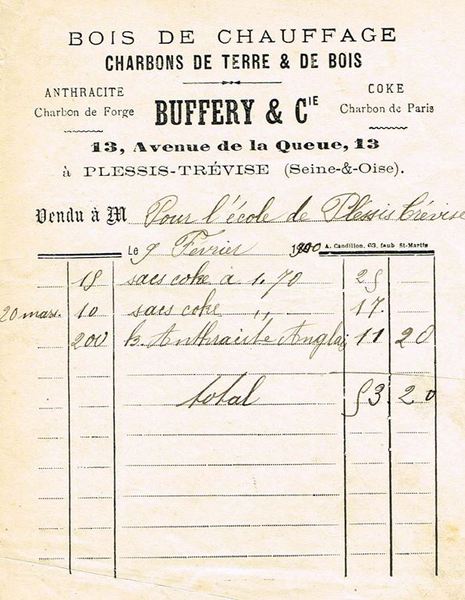 BOIS DE CHAUFFAGE
CHARBONS DE TERRE & DE BOIS
ANTHRACITE
Charbon de Forge
BUFFERY & CIE
COKE
Charbon de Paris
13, Avenue de la Queue, 13
à PLESSIS-TRÉVISE (Seine-&-Oise).
Vendu à M Pour l'école de Plessis Trévise
Le 9 Février 1900 A. Candillon, 63, faub St-Martin
15 sacs coke à 1.70 25
20 mars. 10 sacs coke ,, 17.
200 k. Anthracite Anglais 11 20
total 53 20